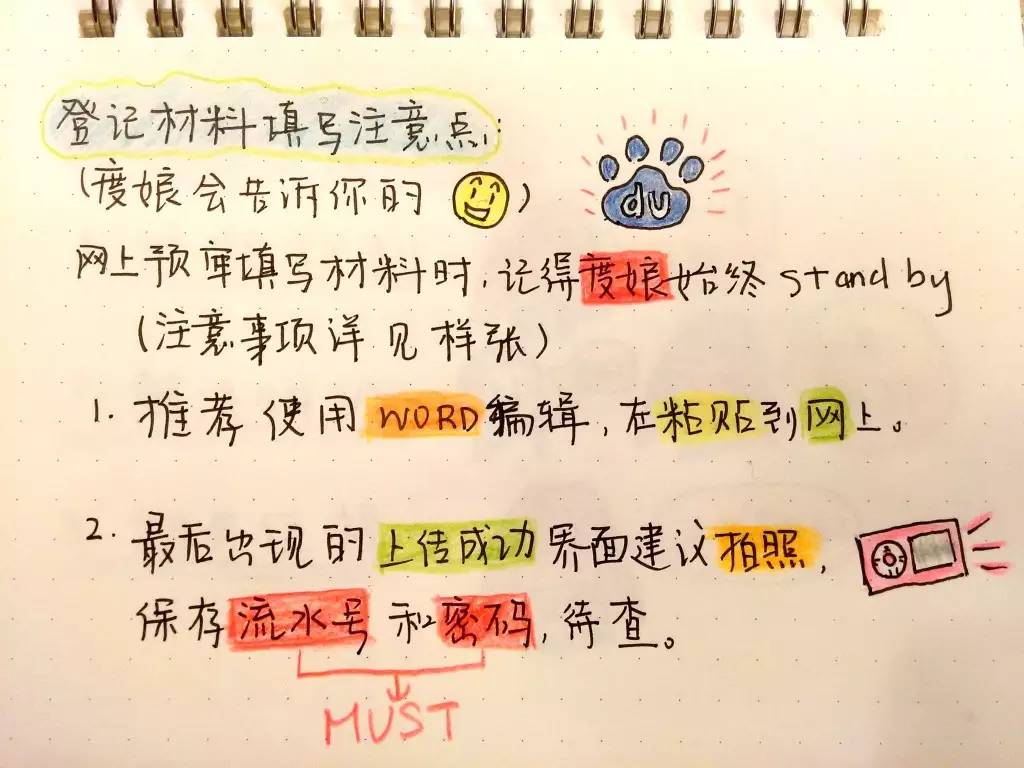 登记材料填写注意点:
(度娘会告诉你的)
du
网上预审填写材料时,记得度娘始终 stand by
(注意事项详见样张)
1. 推荐使用 WORD 编辑,在粘贴到网上。
2. 最后出现的上传成功界面建议拍照,
保存流水号和密码,待查。
MUST